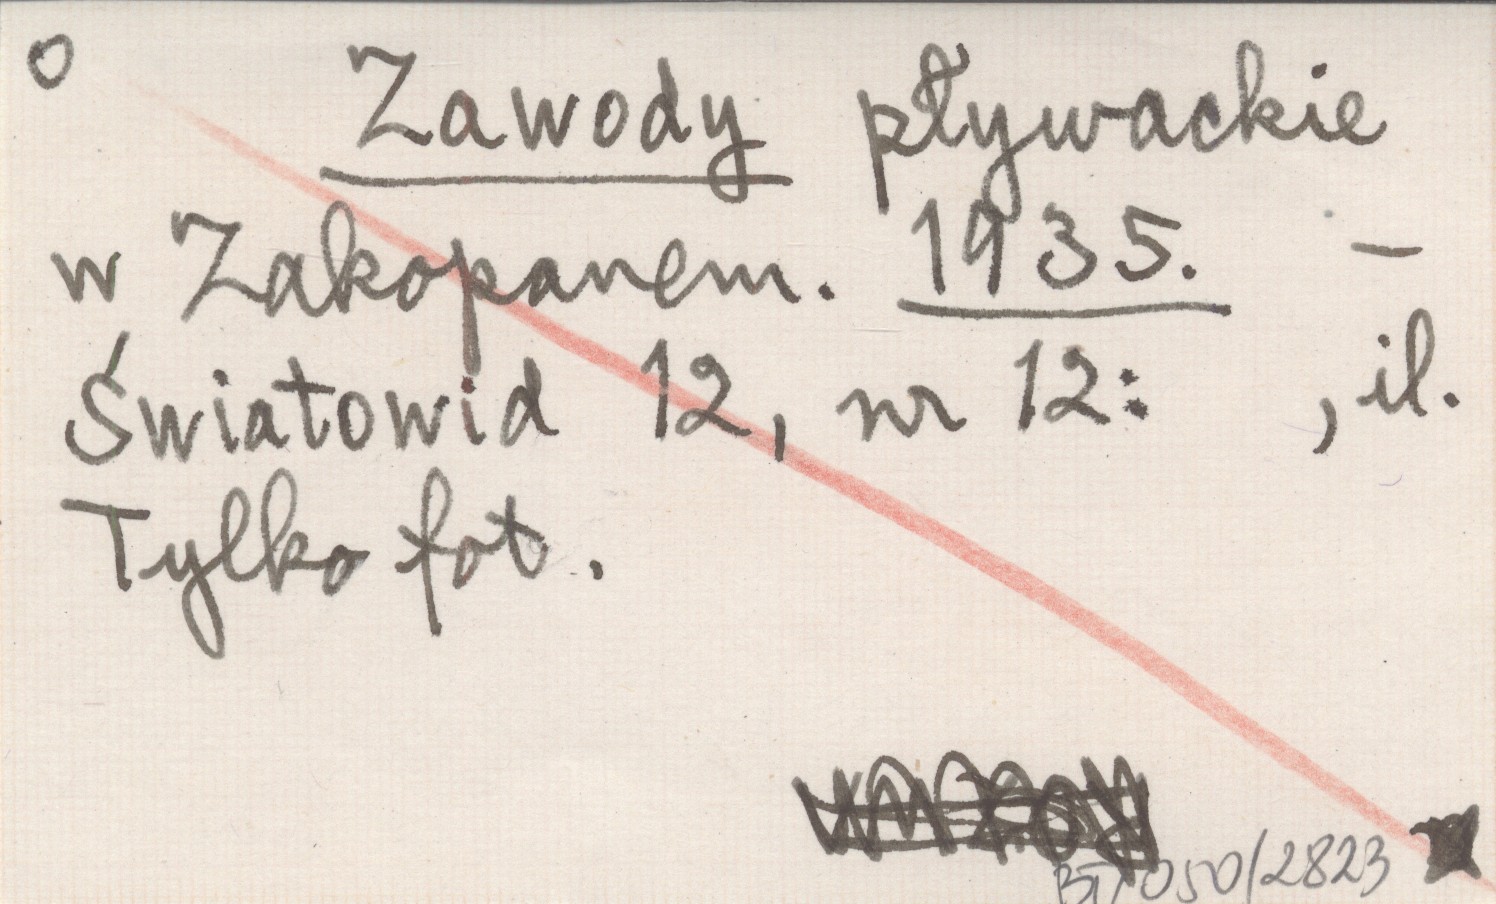 O Zawody pływackie
w Zakopanem. 1935. —
Światowid 12, nr 12: , il.
Tylko fot.
050/2823